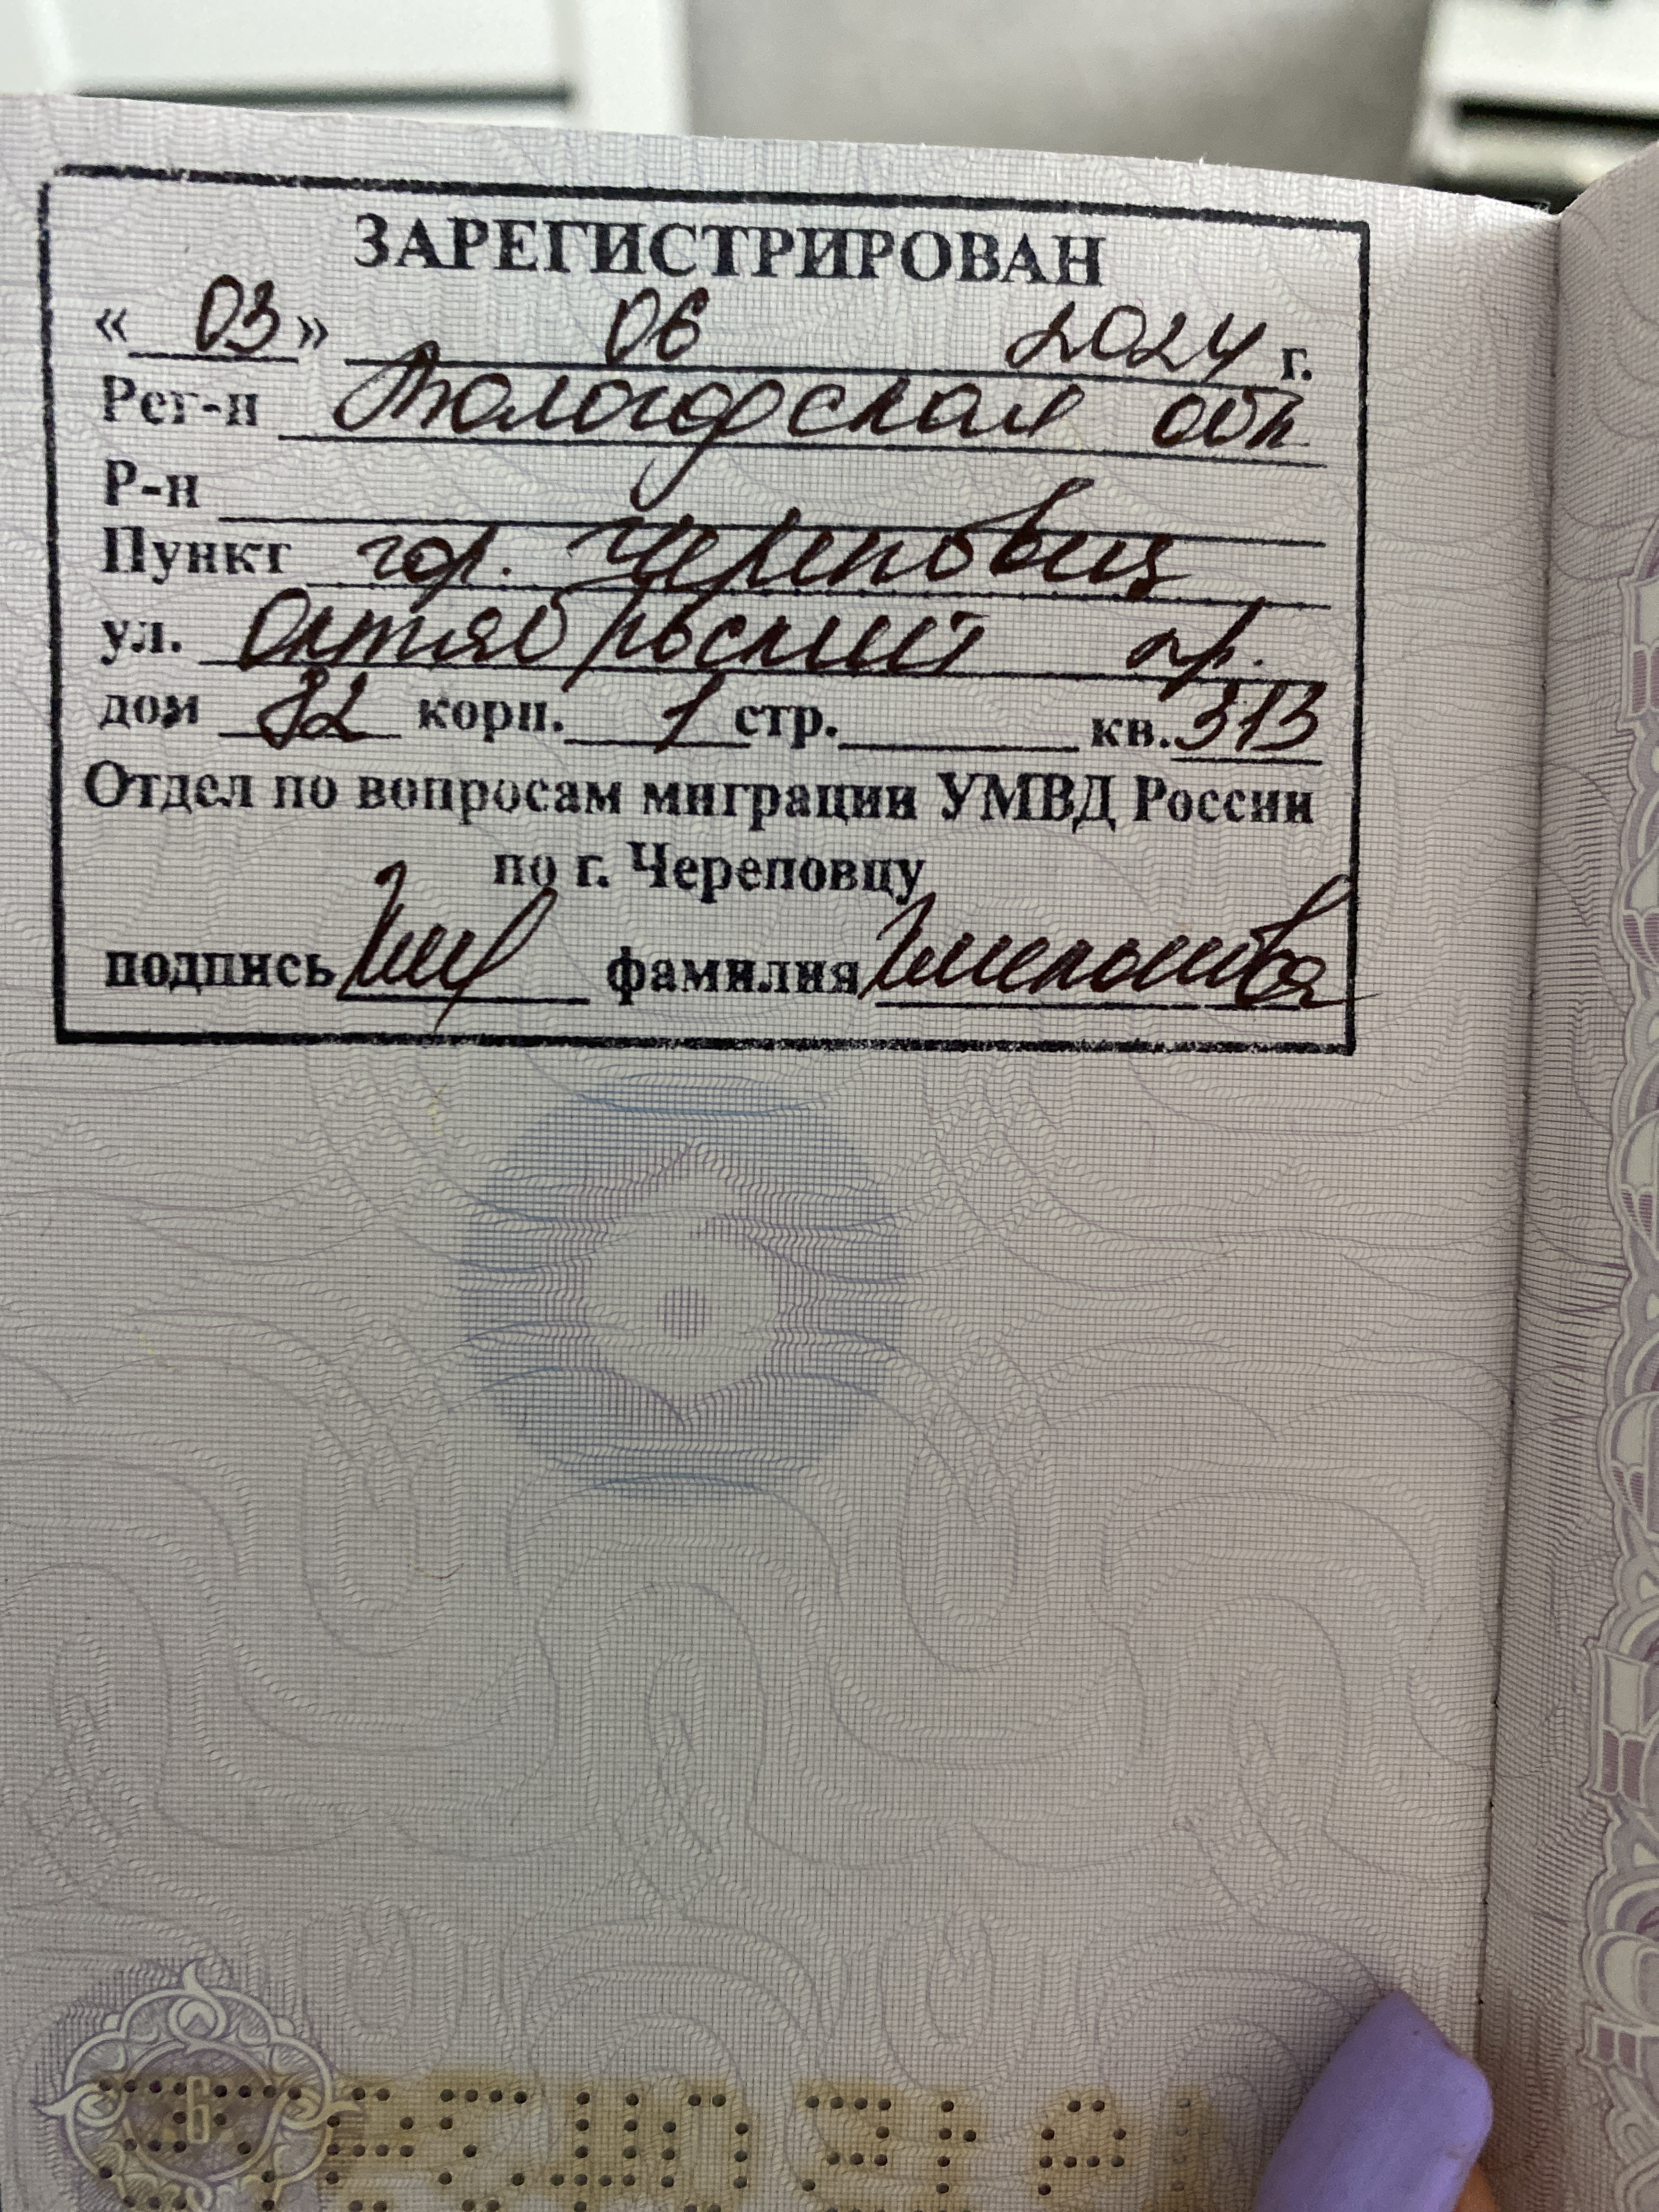 ЗАРЕГИСТРИРОВАН
« 03 » 06 2024 г.
Рег-н Вологодская обл
Р-н
Пункт гор. Череповец
ул. Октябрьский пр.
дом 82 корп. 1 стр. кв. 313
Отдел по вопросам миграции УМВД России
по г. Череповцу
подпись фамилия
6